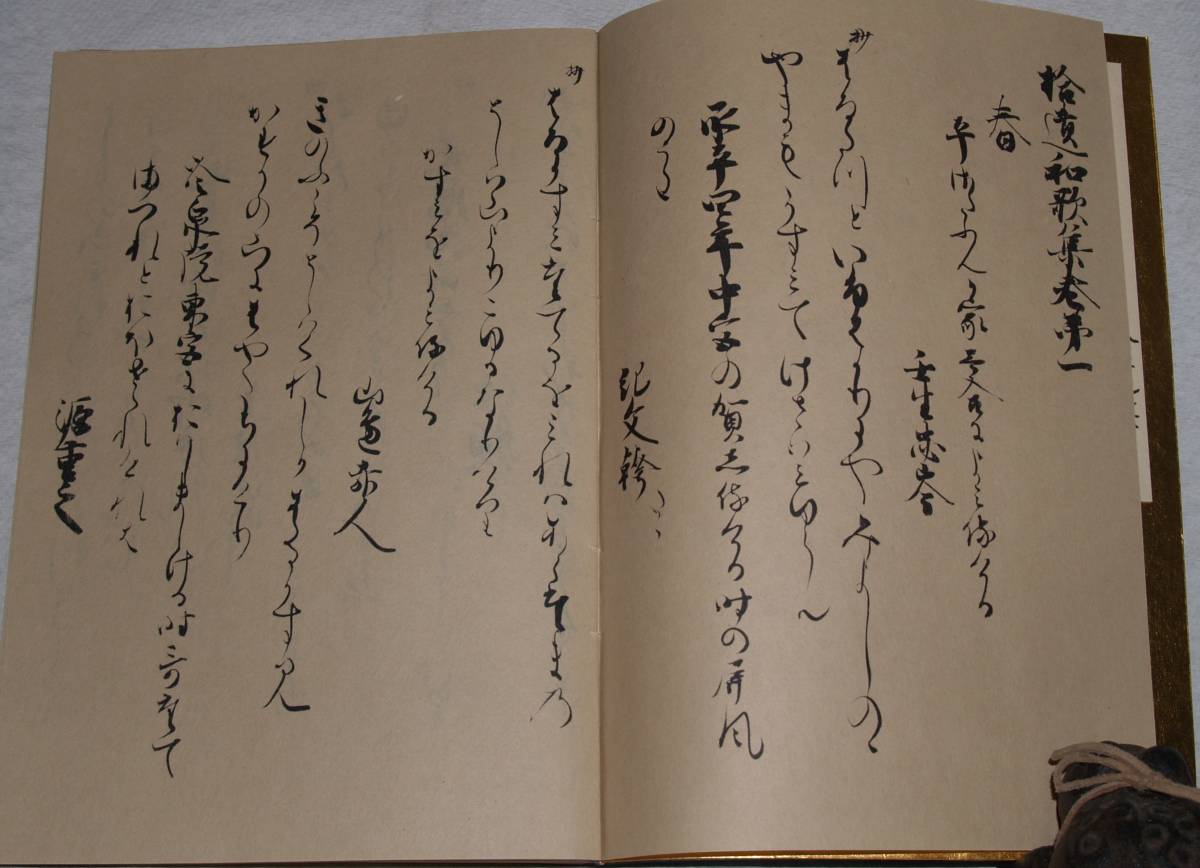 拾遺和歌集巻第一
春
平さたふんか家哥合によみ侍ける
壬生忠岑
抄
はるたつといふはかりにやみよしのゝ
やまもかすみてけさはみゆらん
承平四年中宮の賀し侍ける時の屏風
のうた
紀文幹
抄
はるかすみたてるをみれはあらたまの
としは山よりこゆるなりけり
かすみをよみ侍ける
山邊赤人
きのふこそとしはくれしかはるかすみ
かすかの山にはやたちにけり
冷泉院東宮におはしましける時哥たて
まつれとおほせられけれは
源重之